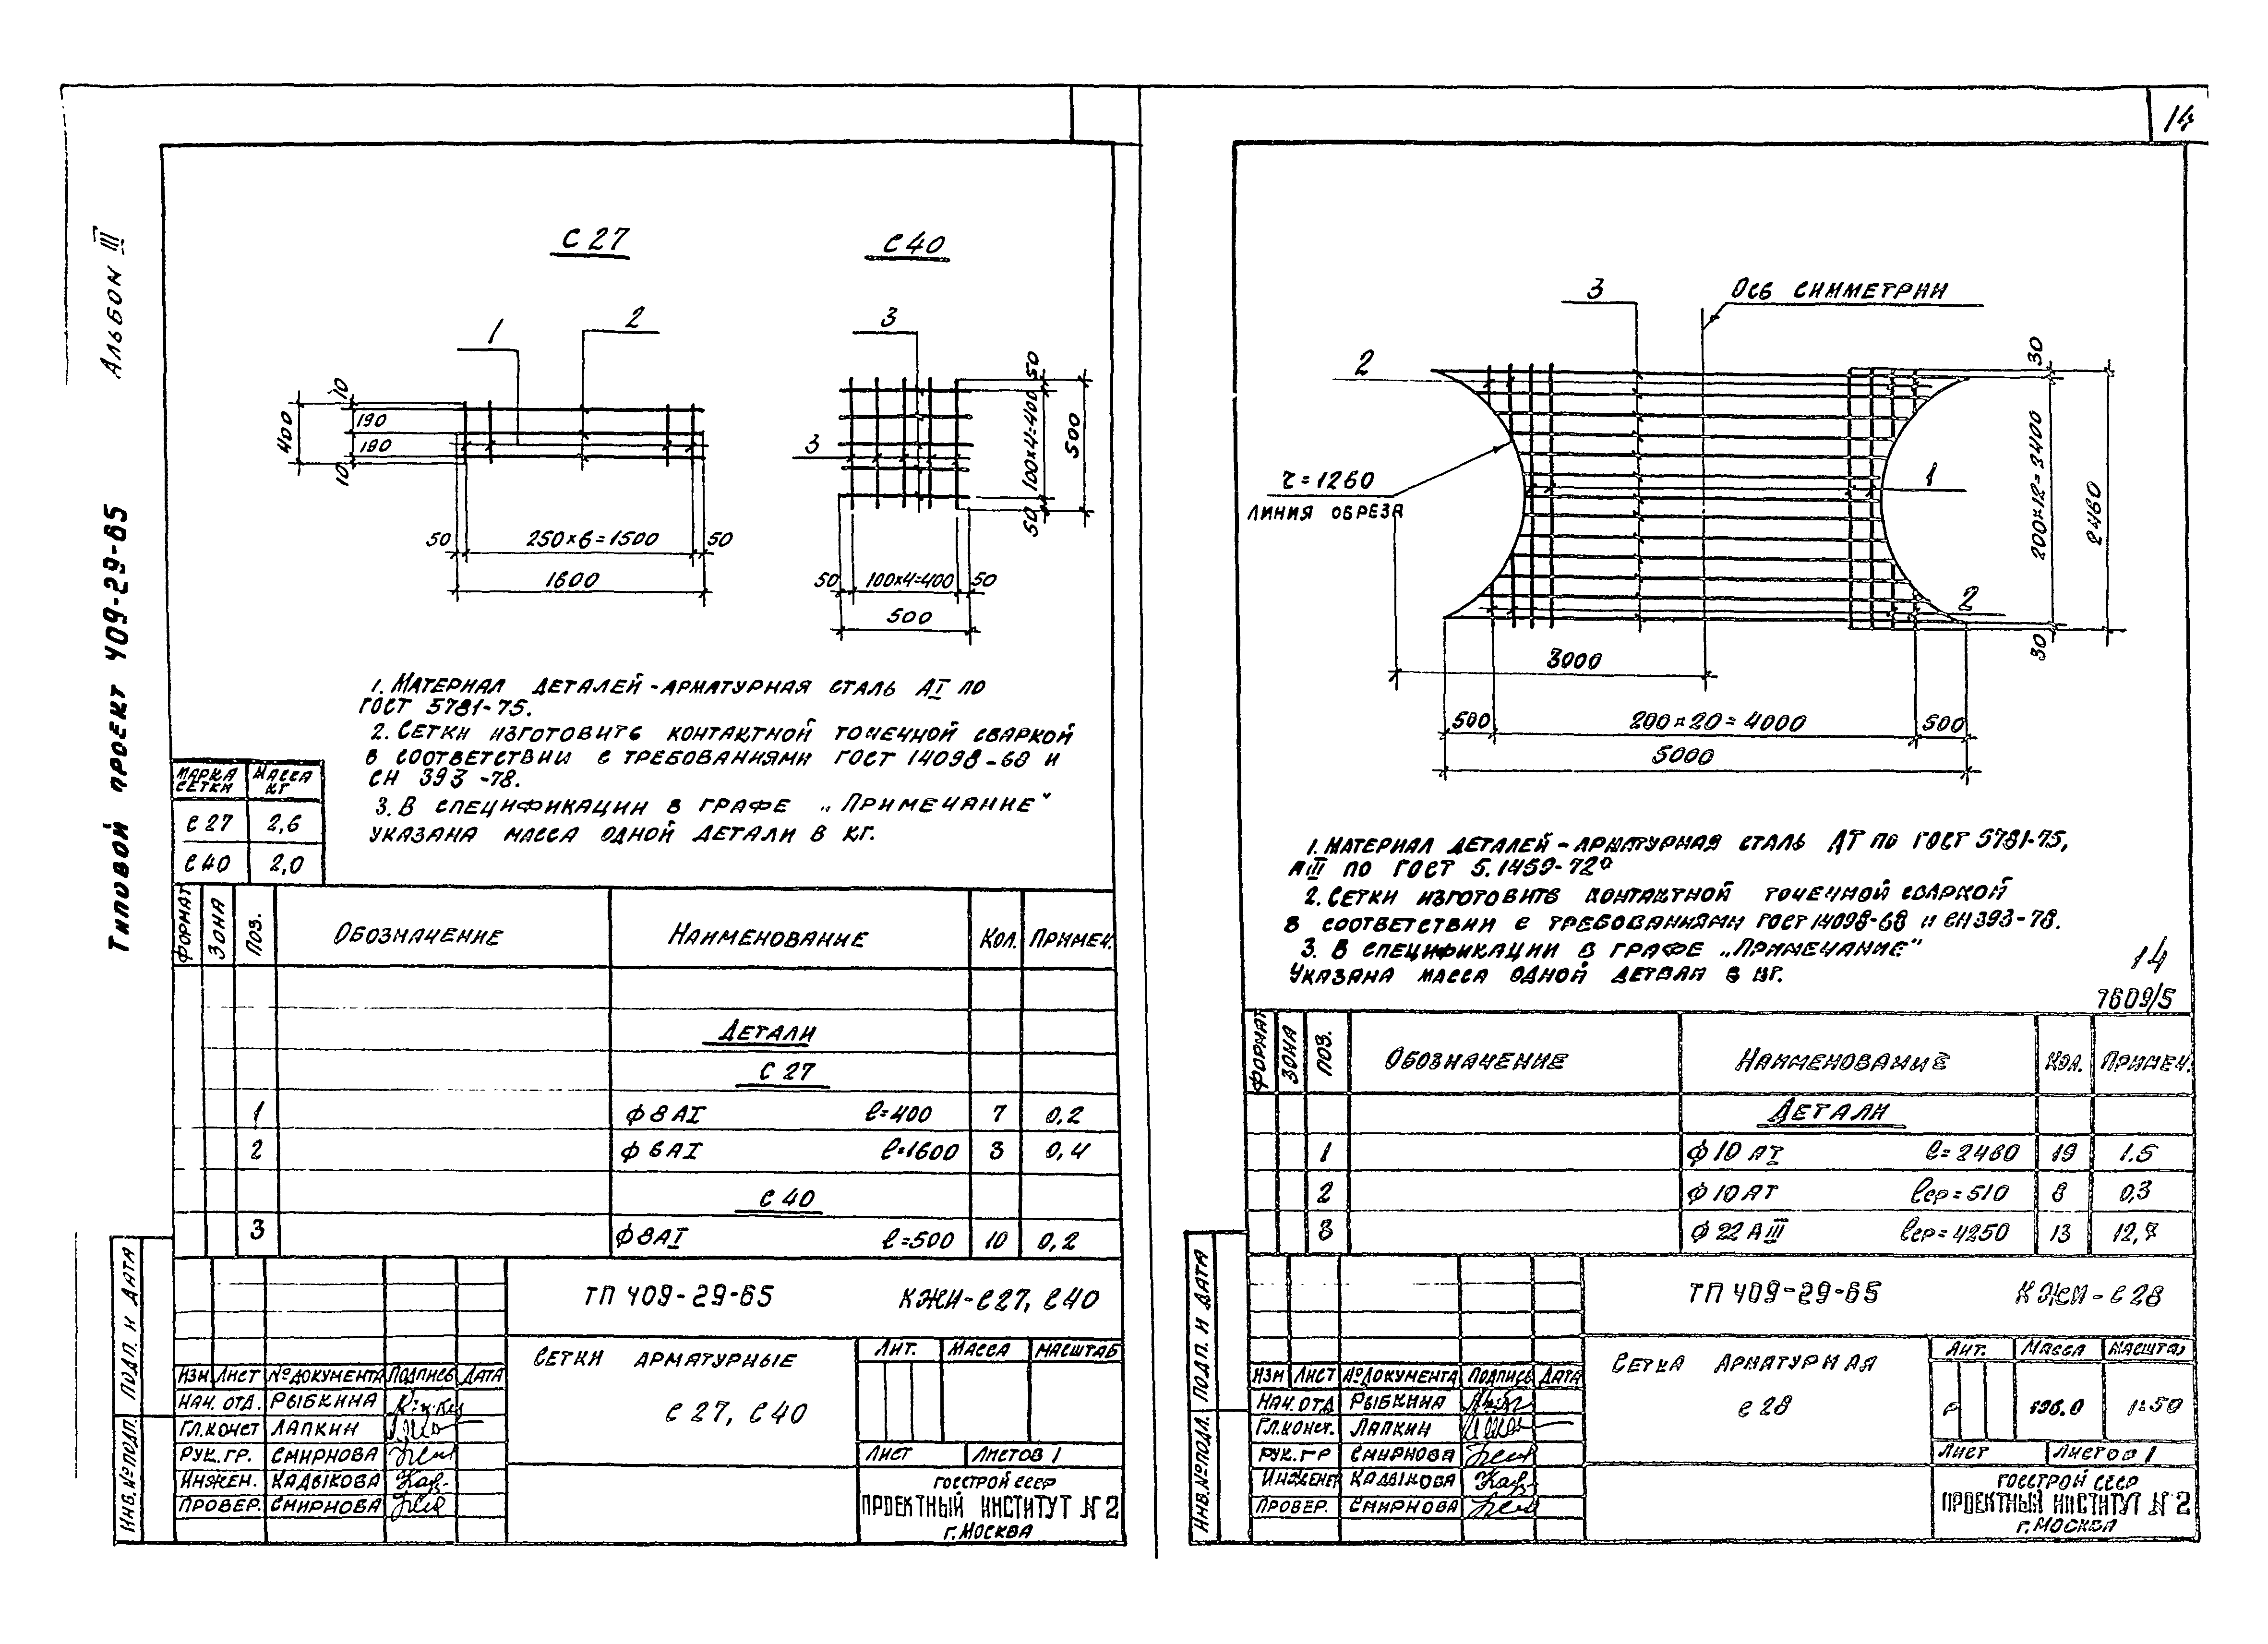 14
Альбом III
Типовой проект 409-29-65
С 27
С 40
1
2
3
3
400
10
190
180
10
50
250×6=1500
50
1600
50
100×4=400
50
500
50
100×4=400
50
500
1. Материал деталей-арматурная сталь АI по
ГОСТ 5781-75.
2. Сетки изготовить контактной точечной сваркой
в соответствии с требованиями ГОСТ 14098-68 и
СН 393-78.
3. В спецификации в графе „Примечание"
указана масса одной детали в кг.
Марка сетки Масса кг
С 27 2,6
С 40 2,0
Формат Зона Поз. Обозначение Наименование Кол. Примеч.
Детали
С 27
1 ф 8 АI ℓ=400 7 0,2
2 ф 6 АI ℓ=1600 3 0,4
С 40
3 ф 8 АI ℓ=500 10 0,2
ТП 409-29-65 КЖИ-С27, С40
Сетки арматурные
С 27, С 40
Лит. Масса Масштаб
Лист Листов 1
Изм Лист № документа Подпись Дата
Нач. отд. Рыбкина
Гл. конст Лапкин
Рук. гр. Смирнова
Инжен. Кадыкова
Провер. Смирнова
Госстрой СССР
Проектный институт № 2
г. Москва
Инв. № подл. Подп. и дата
3
Ось симметрии
2
r = 1260
Линия обреза
1
2
30
200×12=2400
30
2460
3000
500
200×20=4000
500
5000
1. Материал деталей-арматурная сталь АI по ГОСТ 5781-75,
АIII по ГОСТ 5.1459-72°
2. Сетки изготовить контактной точечной сваркой
в соответствии с требованиями ГОСТ 14098-68 и СН 393-78.
3. В спецификации в графе „Примечание"
указана масса одной детали в кг.
14
7609/5
Формат Зона Поз. Обозначение Наименование Кол. Примеч.
Детали
1 ф 10 АI ℓ=2460 19 1.5
2 ф 10 АI ℓср=510 8 0,3
3 ф 22 АIII ℓср=4250 13 12,7
ТП 409-29-65 КЖИ-С 28
Сетка арматурная
С 28
Лит. Масса Масштаб
Р 196.0 1:50
Лист Листов 1
Изм Лист № документа Подпись Дата
Нач. отд Рыбкина
Гл. конст. Лапкин
Рук. гр Смирнова
Инженер Кадыкова
Провер. Смирнова
Госстрой СССР
Проектный институт № 2
г. Москва
Инв. № подл. Подп. и дата